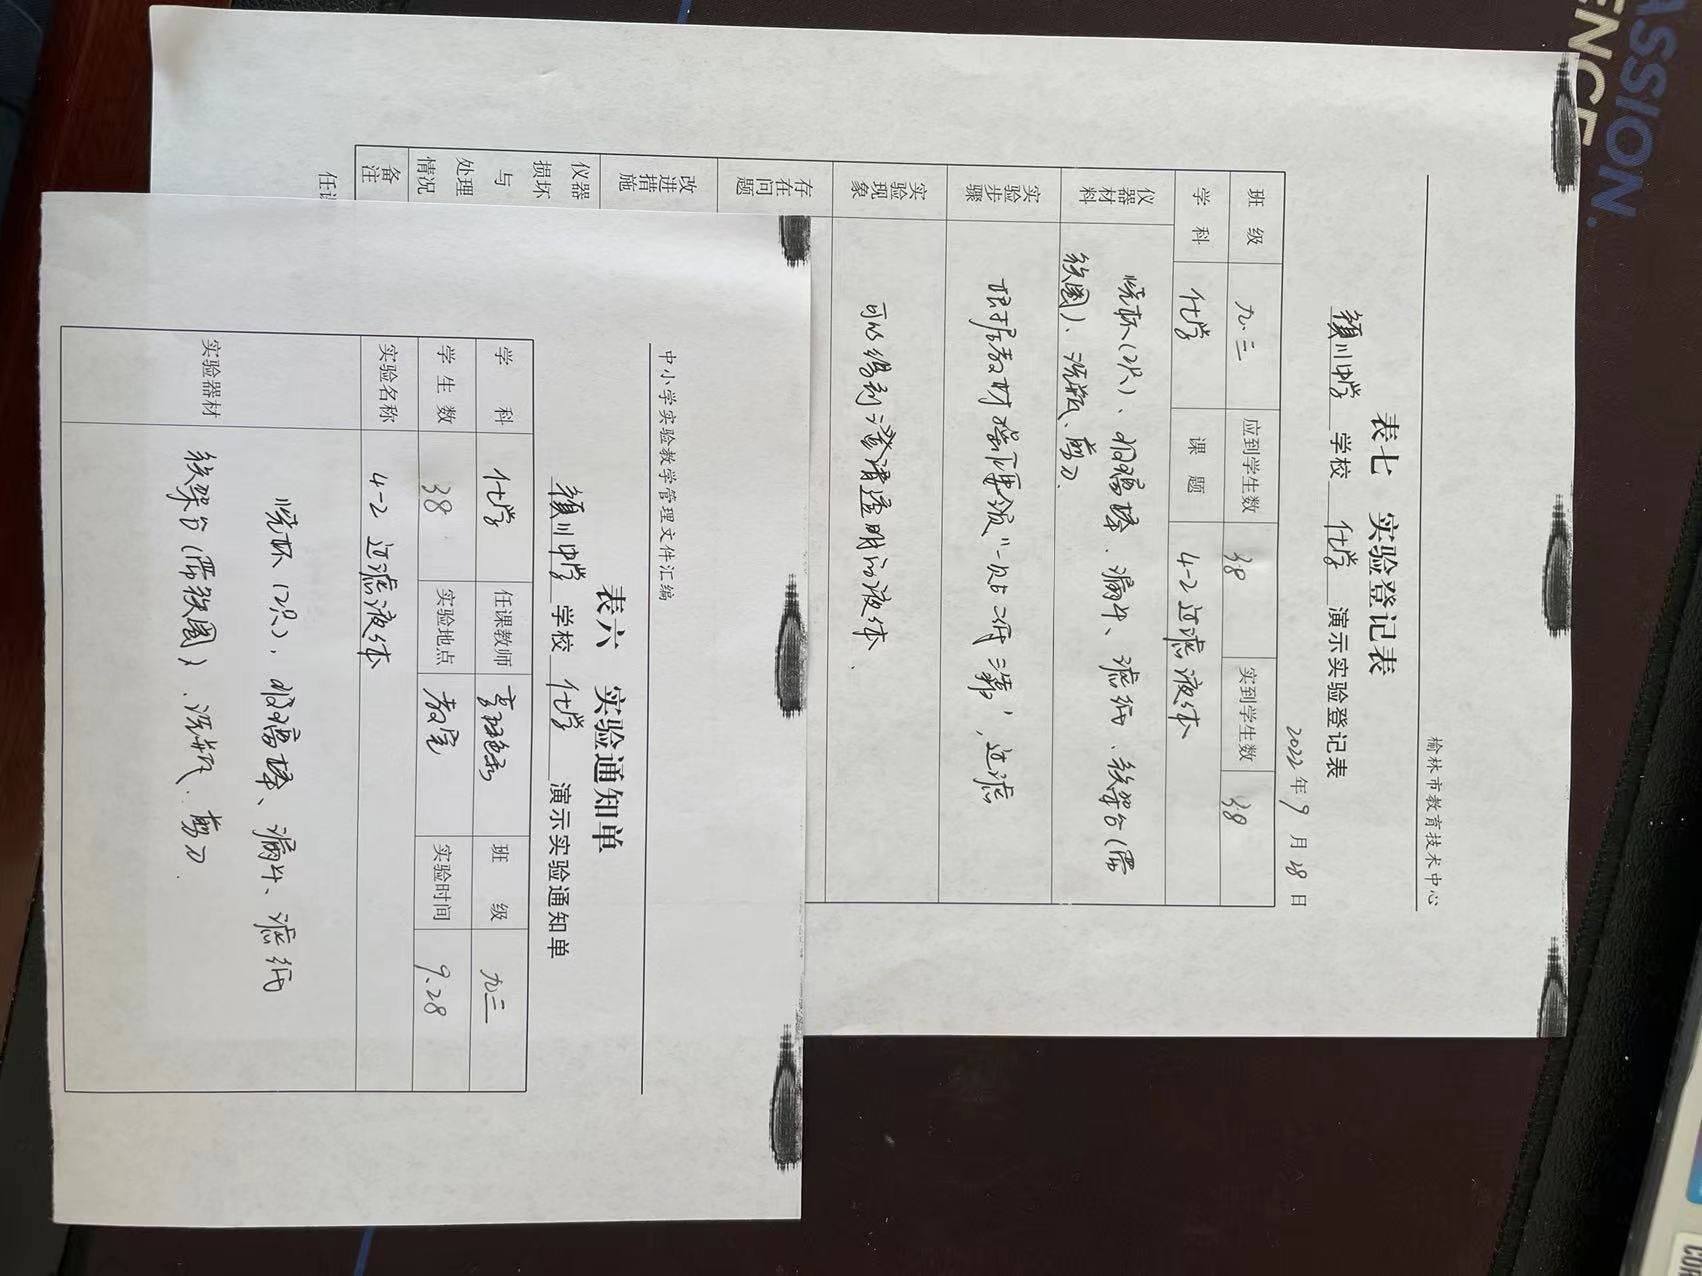 榆林市教育技术中心
表七 实验登记表
颍川中学 学校 化学 演示实验登记表
2022年9月28日
班 级 九.三 应到学生数 38 实到学生数 38
学 科 化学 课 题 4-2过滤液体
仪器材料 烧杯(2只)、玻璃棒、漏斗、滤纸、铁架台(带
铁圈)、洗瓶、剪刀.
实验步骤 根据教材操作要领"一贴二低三靠",过滤
实验现象 可以得到澄清透明的液体.
存在问题
改进措施
仪器损坏与处理情况
备注
任课
中小学实验教学管理文件汇编
表六 实验通知单
颍川中学 学校 化学 演示实验通知单
学 科 化学 任课教师 班 级 九三
学生数 38 实验地点 教室 实验时间 9.28
实验名称 4-2 过滤液体
实验器材 烧杯(2只),玻璃棒、漏斗、滤纸
铁架台(带铁圈)、洗瓶、剪刀.
PASSION.
ENCE
CUR